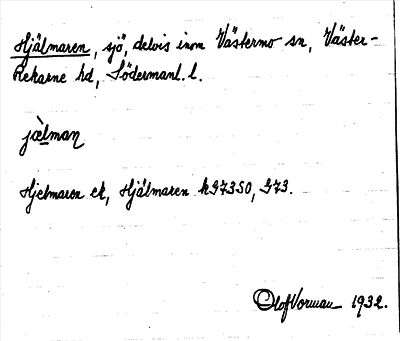 Hjälmaren, sjö, delvis inom Västermo sn, Väster-
Rekarne hd, Södermanl. l.
jæ̀lmaɳ
Hjelmaren ek, Hjälmaren h973SO, 973.
Olof Vorman 1932.